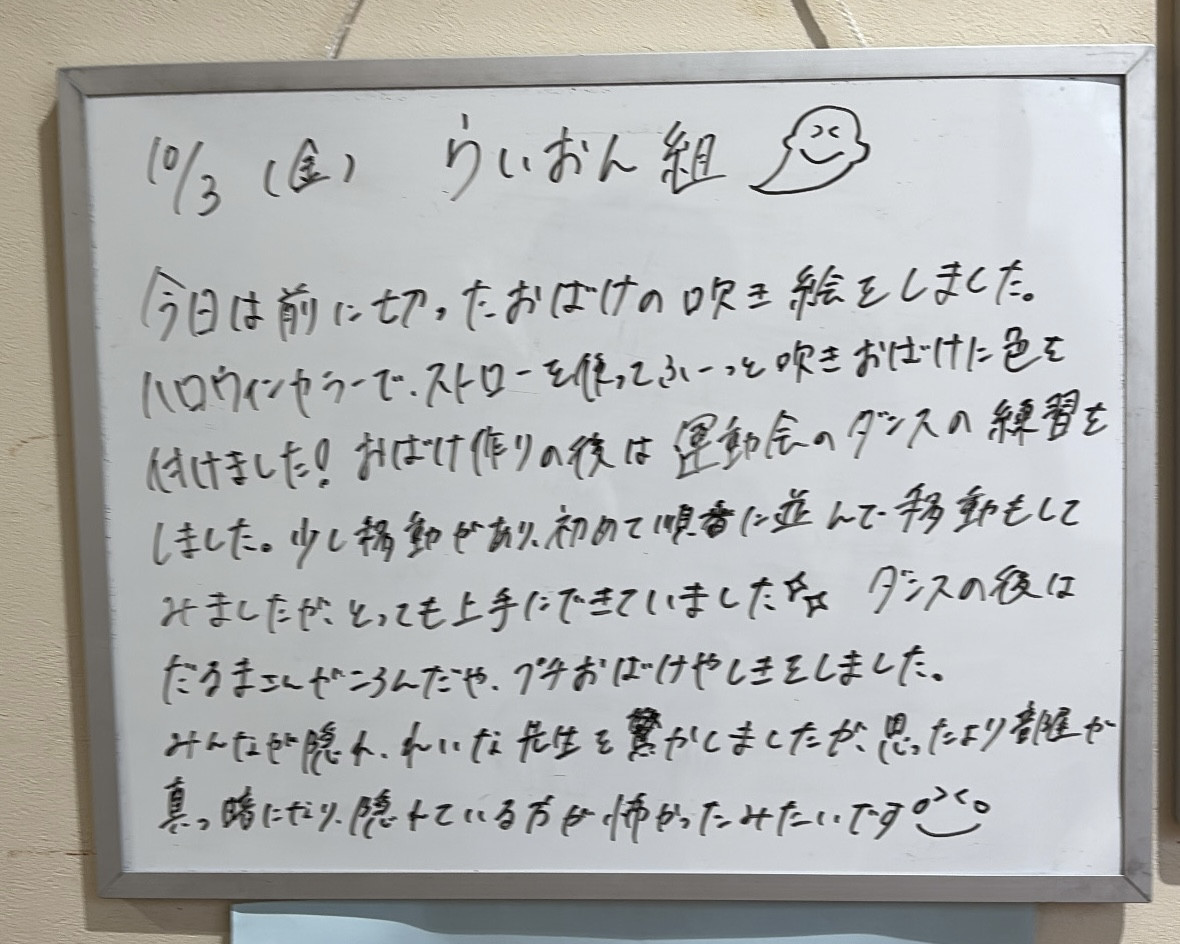 10/3 (金) らいおん組
今日は前に切ったおばけの吹き絵をしました。
ハロウィンカラーで、ストローを使ってふーっと吹きおばけに色を
付けました!おばけ作りの後は運動会のダンスの練習を
しました。少し移動があり、初めて順番に並んで移動もして
みましたが、とっても上手にできていました☆☆ ダンスの後は
だるまさんがころんだや、プチおばけやしきをしました。
みんなが隠れ、れいな先生を驚かしましたが、思ったより部屋が
真っ暗になり、隠れている方が怖かったみたいです